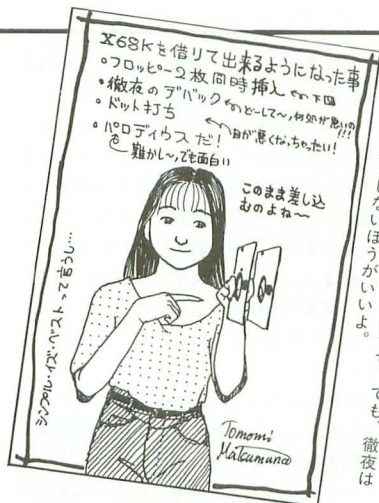 X68Kを借りて出来るようになった事
・フロッピー2枚同時挿入 ←下図
・徹夜のデバック ←どーして〜,何処が悪いの!!!
・ドット打ち ←目が悪くなっちゃったい!
・パロディウスだ!
難かし〜,でも面白い
このまま差し込
むのよね〜
シンプル・イズ・ベストって言うし…
Tomomi
Matsumuna
ないほうがいいよ。
ても,徹夜は